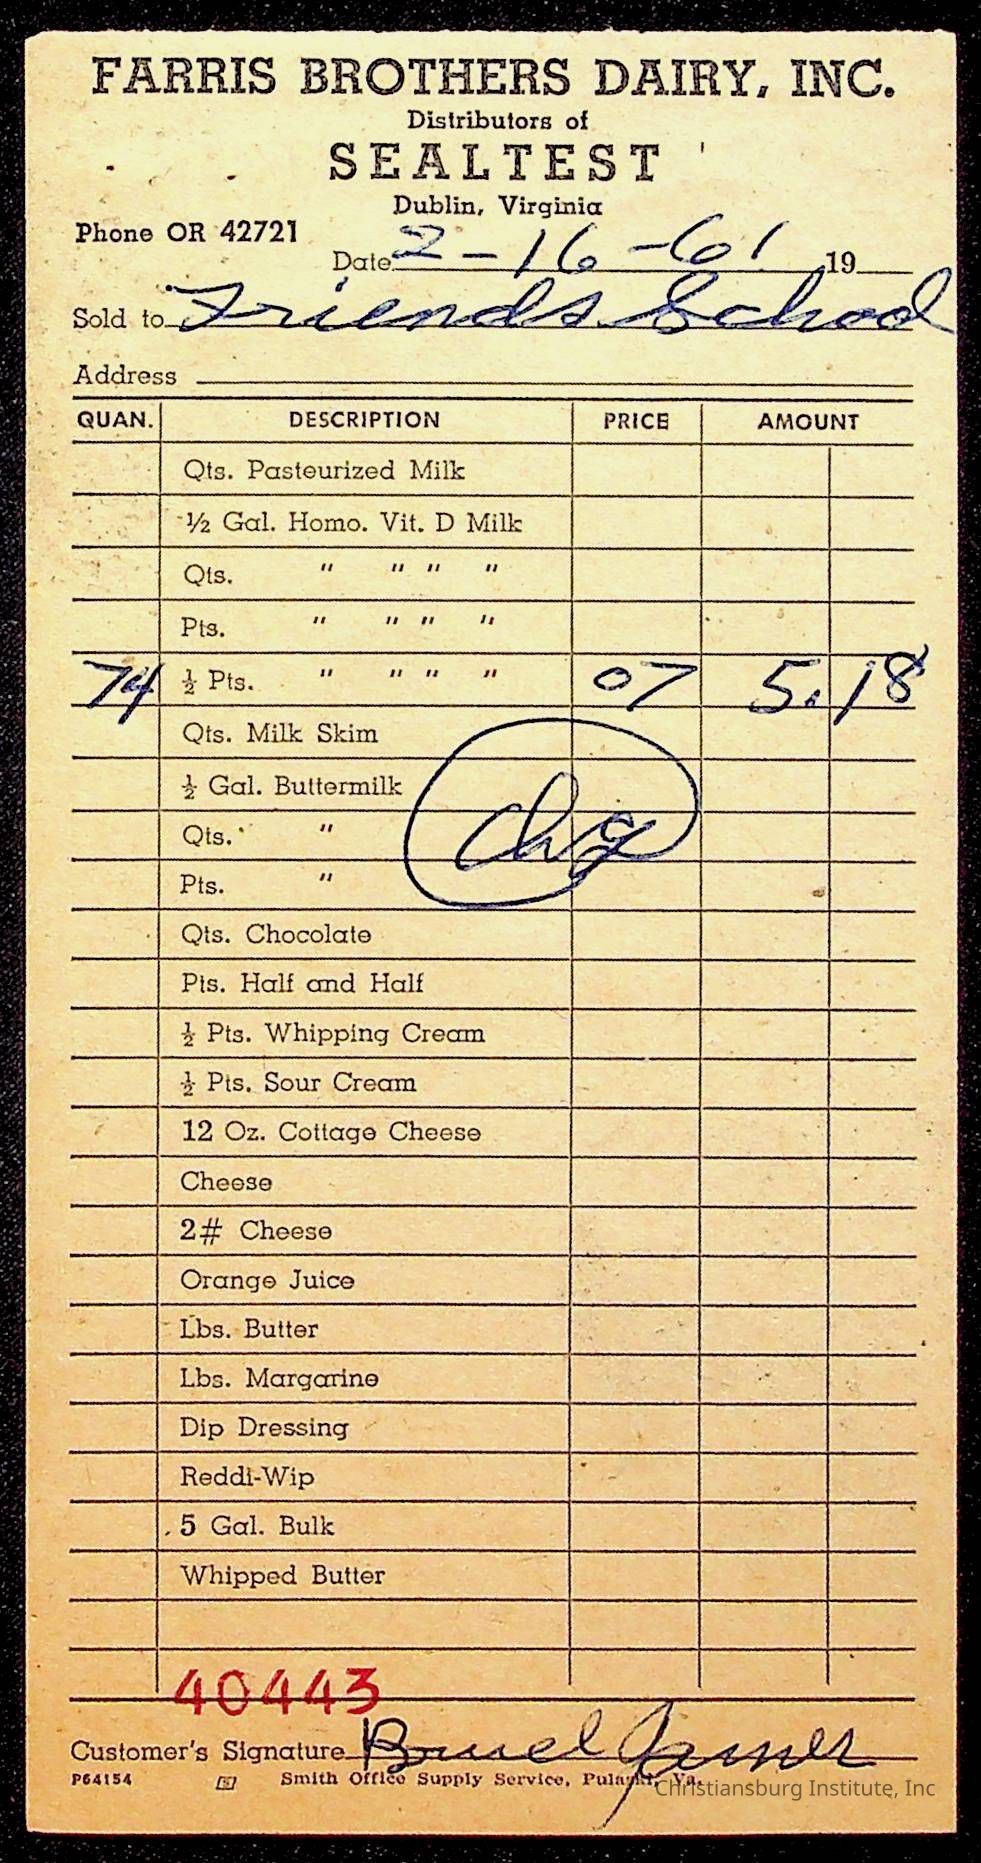 FARRIS BROTHERS DAIRY, INC.
Distributors of
SEALTEST
Dublin, Virginia
Phone OR 42721
Date 2-16-61 19
Sold to Friends School
Address
QUAN. DESCRIPTION PRICE AMOUNT
Qts. Pasteurized Milk
½ Gal. Homo. Vit. D Milk
Qts. " " " "
Pts. " " " "
74 ½ Pts. " " " " 07 5.18
Qts. Milk Skim
½ Gal. Buttermilk
Chg
Qts. "
Pts. "
Qts. Chocolate
Pts. Half and Half
½ Pts. Whipping Cream
½ Pts. Sour Cream
12 Oz. Cottage Cheese
Cheese
2# Cheese
Orange Juice
Lbs. Butter
Lbs. Margarine
Dip Dressing
Reddi-Wip
5 Gal. Bulk
Whipped Butter
40443
Customer's Signature
P64154 Smith Office Supply Service, Pulaski, Va.
Christiansburg Institute, Inc